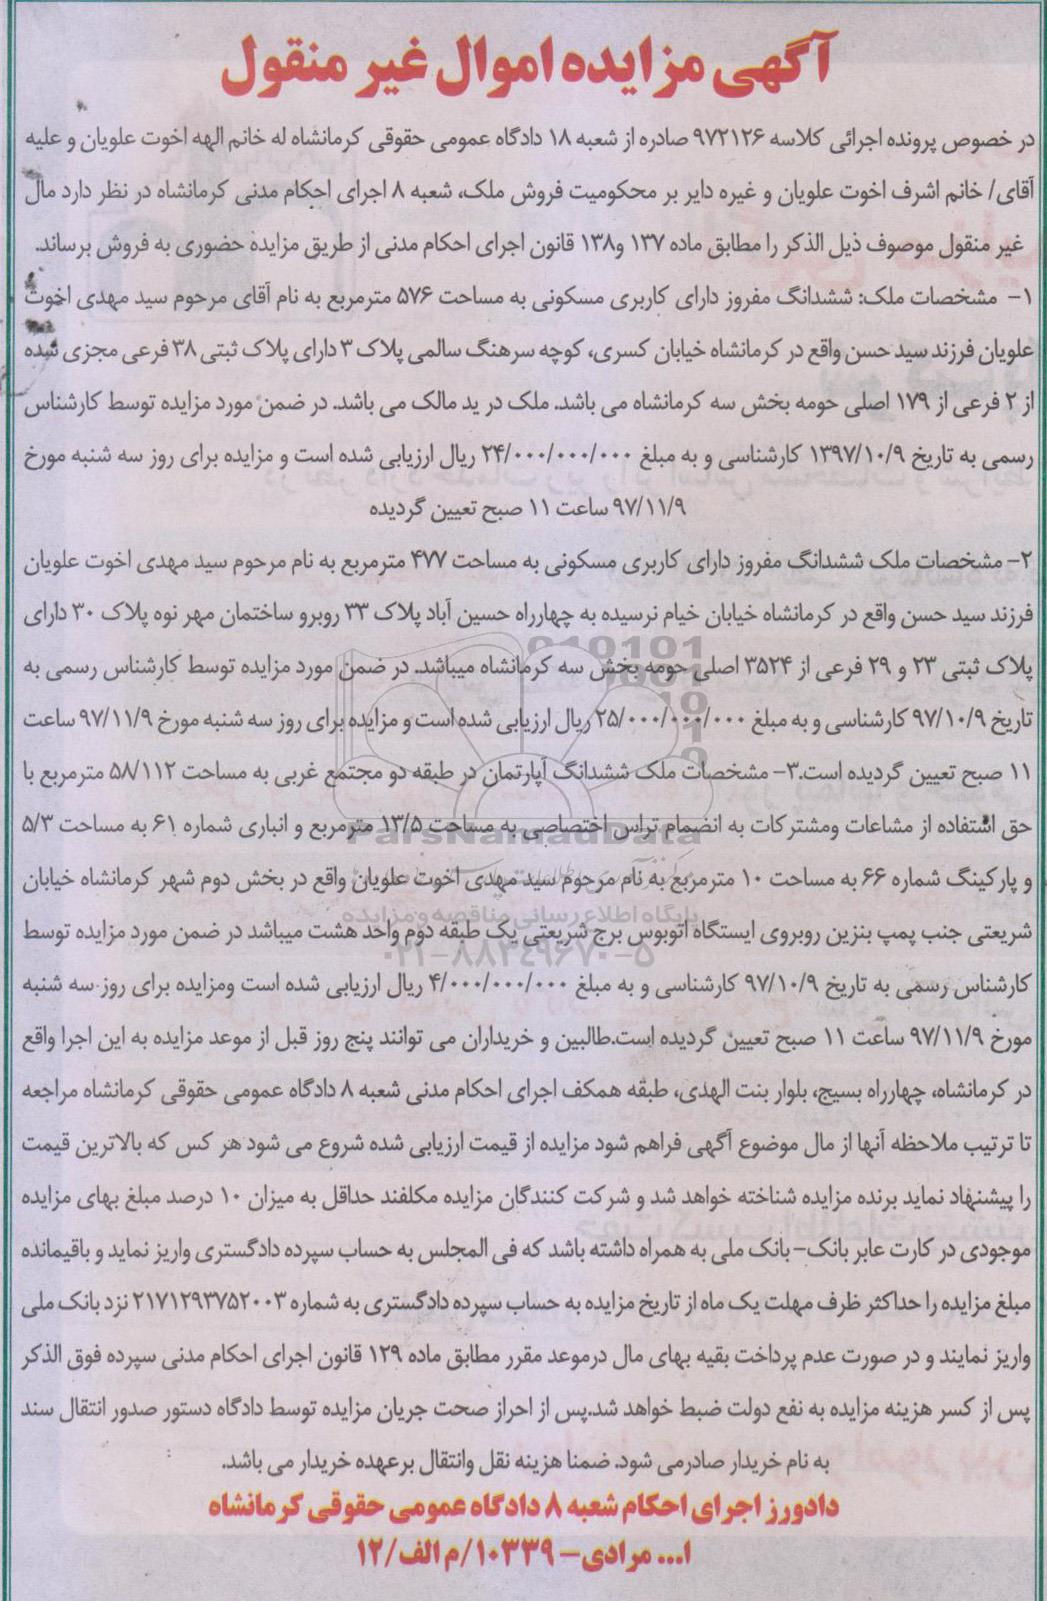 آگهی مزایده اموال غیر منقول
در خصوص پرونده اجرائی کلاسه ۹۷۲۱۲۶ صادره از شعبه ۱۸ دادگاه عمومی حقوقی کرمانشاه له خانم الهه اخوت علویان و علیه
آقای/ خانم اشرف اخوت علویان و غیره دایر بر محکومیت فروش ملک، شعبه ۸ اجرای احکام مدنی کرمانشاه در نظر دارد مال
غیر منقول موصوف ذیل الذکر را مطابق ماده ۱۳۷ و۱۳۸ قانون اجرای احکام مدنی از طریق مزایده حضوری به فروش برساند.
۱- مشخصات ملک: ششدانگ مفروز دارای کاربری مسکونی به مساحت ۵۷۶ مترمربع به نام آقای مرحوم سید مهدی اخوت
علویان فرزند سید حسن واقع در کرمانشاه خیابان کسری، کوچه سرهنگ سالمی پلاک ۳ دارای پلاک ثبتی ۳۸ فرعی مجزی شده
از ۲ فرعی از ۱۷۹ اصلی حومه بخش سه کرمانشاه می باشد. ملک در ید مالک می باشد. در ضمن مورد مزایده توسط کارشناس
رسمی به تاریخ ۱۳۹۷/۱۰/۹ کارشناسی و به مبلغ ۲۴/۰۰۰/۰۰۰/۰۰۰ ریال ارزیابی شده است و مزایده برای روز سه شنبه مورخ
۹۷/۱۱/۹ ساعت ۱۱ صبح تعیین گردیده
۲- مشخصات ملک ششدانگ مفروز دارای کاربری مسکونی به مساحت ۴۷۷ مترمربع به نام مرحوم سید مهدی اخوت علویان
فرزند سید حسن واقع در کرمانشاه خیابان خیام نرسیده به چهارراه حسین آباد پلاک ۳۳ روبرو ساختمان مهر نوه پلاک ۳۰ دارای
پلاک ثبتی ۲۳ و ۲۹ فرعی از ۳۵۲۴ اصلی حومه بخش سه کرمانشاه میباشد. در ضمن مورد مزایده توسط کارشناس رسمی به
تاریخ ۹۷/۱۰/۹ کارشناسی و به مبلغ ۲۵/۰۰۰/۰۰۰/۰۰۰ ریال ارزیابی شده است و مزایده برای روز سه شنبه مورخ ۹۷/۱۱/۹ ساعت
۱۱ صبح تعیین گردیده است.۳- مشخصات ملک ششدانگ آپارتمان در طبقه دو مجتمع غربی به مساحت ۵۸/۱۱۲ مترمربع با
حق استفاده از مشاعات ومشترکات به انضمام تراس اختصاصی به مساحت ۱۳/۵ مترمربع و انباری شماره ۶۱ به مساحت ۵/۳
و پارکینگ شماره ۶۶ به مساحت ۱۰ مترمربع به نام مرحوم سید مهدی اخوت علویان واقع در بخش دوم شهر کرمانشاه خیابان
شریعتی جنب پمپ بنزین روبروی ایستگاه اتوبوس برج شریعتی یک طبقه دوم واحد هشت میباشد در ضمن مورد مزایده توسط
کارشناس رسمی به تاریخ ۹۷/۱۰/۹ کارشناسی و به مبلغ ۴/۰۰۰/۰۰۰/۰۰۰ ریال ارزیابی شده است ومزایده برای روز سه شنبه
مورخ ۹۷/۱۱/۹ ساعت ۱۱ صبح تعیین گردیده است.طالبین و خریداران می توانند پنج روز قبل از موعد مزایده به این اجرا واقع
در کرمانشاه، چهارراه بسیج، بلوار بنت الهدی، طبقه همکف اجرای احکام مدنی شعبه ۸ دادگاه عمومی حقوقی کرمانشاه مراجعه
تا ترتیب ملاحظه آنها از مال موضوع آگهی فراهم شود مزایده از قیمت ارزیابی شده شروع می شود هر کس که بالاترین قیمت
را پیشنهاد نماید برنده مزایده شناخته خواهد شد و شرکت کنندگان مزایده مکلفند حداقل به میزان ۱۰ درصد مبلغ بهای مزایده
موجودی در کارت عابر بانک- بانک ملی به همراه داشته باشد که فی المجلس به حساب سپرده دادگستری واریز نماید و باقیمانده
مبلغ مزایده را حداکثر ظرف مهلت یک ماه از تاریخ مزایده به حساب سپرده دادگستری به شماره ۲۱۷۱۲۹۳۷۵۲۰۰۳ نزد بانک ملی
واریز نمایند و در صورت عدم پرداخت بقیه بهای مال درموعد مقرر مطابق ماده ۱۲۹ قانون اجرای احکام مدنی سپرده فوق الذکر
پس از کسر هزینه مزایده به نفع دولت ضبط خواهد شد.پس از احراز صحت جریان مزایده توسط دادگاه دستور صدور انتقال سند
به نام خریدار صادرمی شود. ضمنا هزینه نقل وانتقال برعهده خریدار می باشد.
دادورز اجرای احکام شعبه ۸ دادگاه عمومی حقوقی کرمانشاه
ا... مرادی- ۱۰۳۳۹/م الف/۱۲
ParsNamadData
پایگاه اطلاع رسانی مناقصه و مزایده
۰۲۱-۸۸۳۴۹۶۷۰-۵